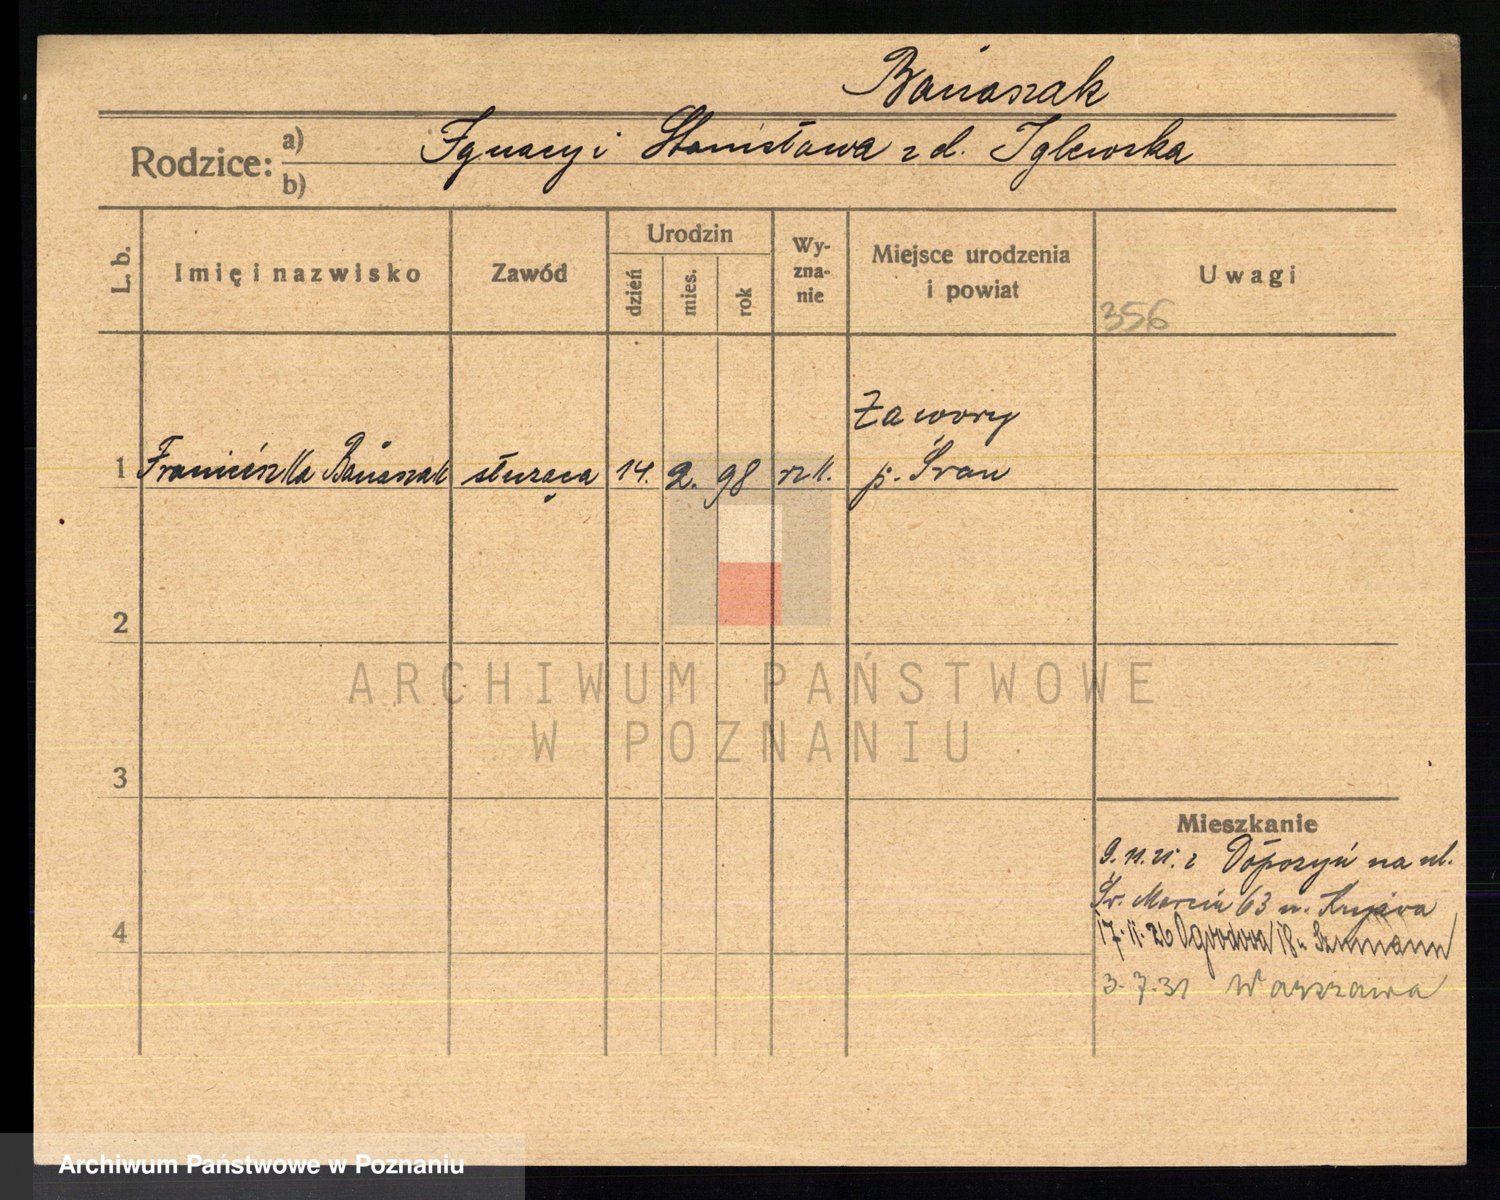 Banaszak
Rodzice: a) b)
Ignacy i Stanisława z d. Iglewska
L. b.
Imię i nazwisko
Zawód
Urodzin
dzień
mies.
rok
Wy-
zna-
nie
Miejsce urodzenia
i powiat
Uwagi
356
Zawory
1 Franciszka Banaszak służąca 14. 2. 98 rzk. p. Śrem
2
3
4
Mieszkanie
9.11.25. z na ul.
Św. Marcin 63 u.
17.11.26 Ogrodowa 18 u Szumann
3.7.31 Warszawa
ARCHIWUM PAŃSTWOWE
W POZNANIU
Archiwum Państwowe w Poznaniu